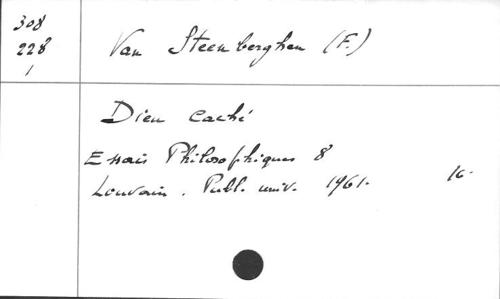 308
228
1
Van Steenberghen (F.)
Dieu caché
Essais Philosophiques 8
Louvain. Publ. univ. 1961.